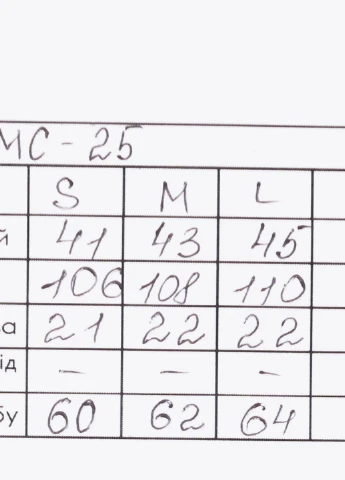 МС - 25
S M L
й 41 43 45
106 108 110
ва 21 22 22
ід - - -
бу 60 62 64